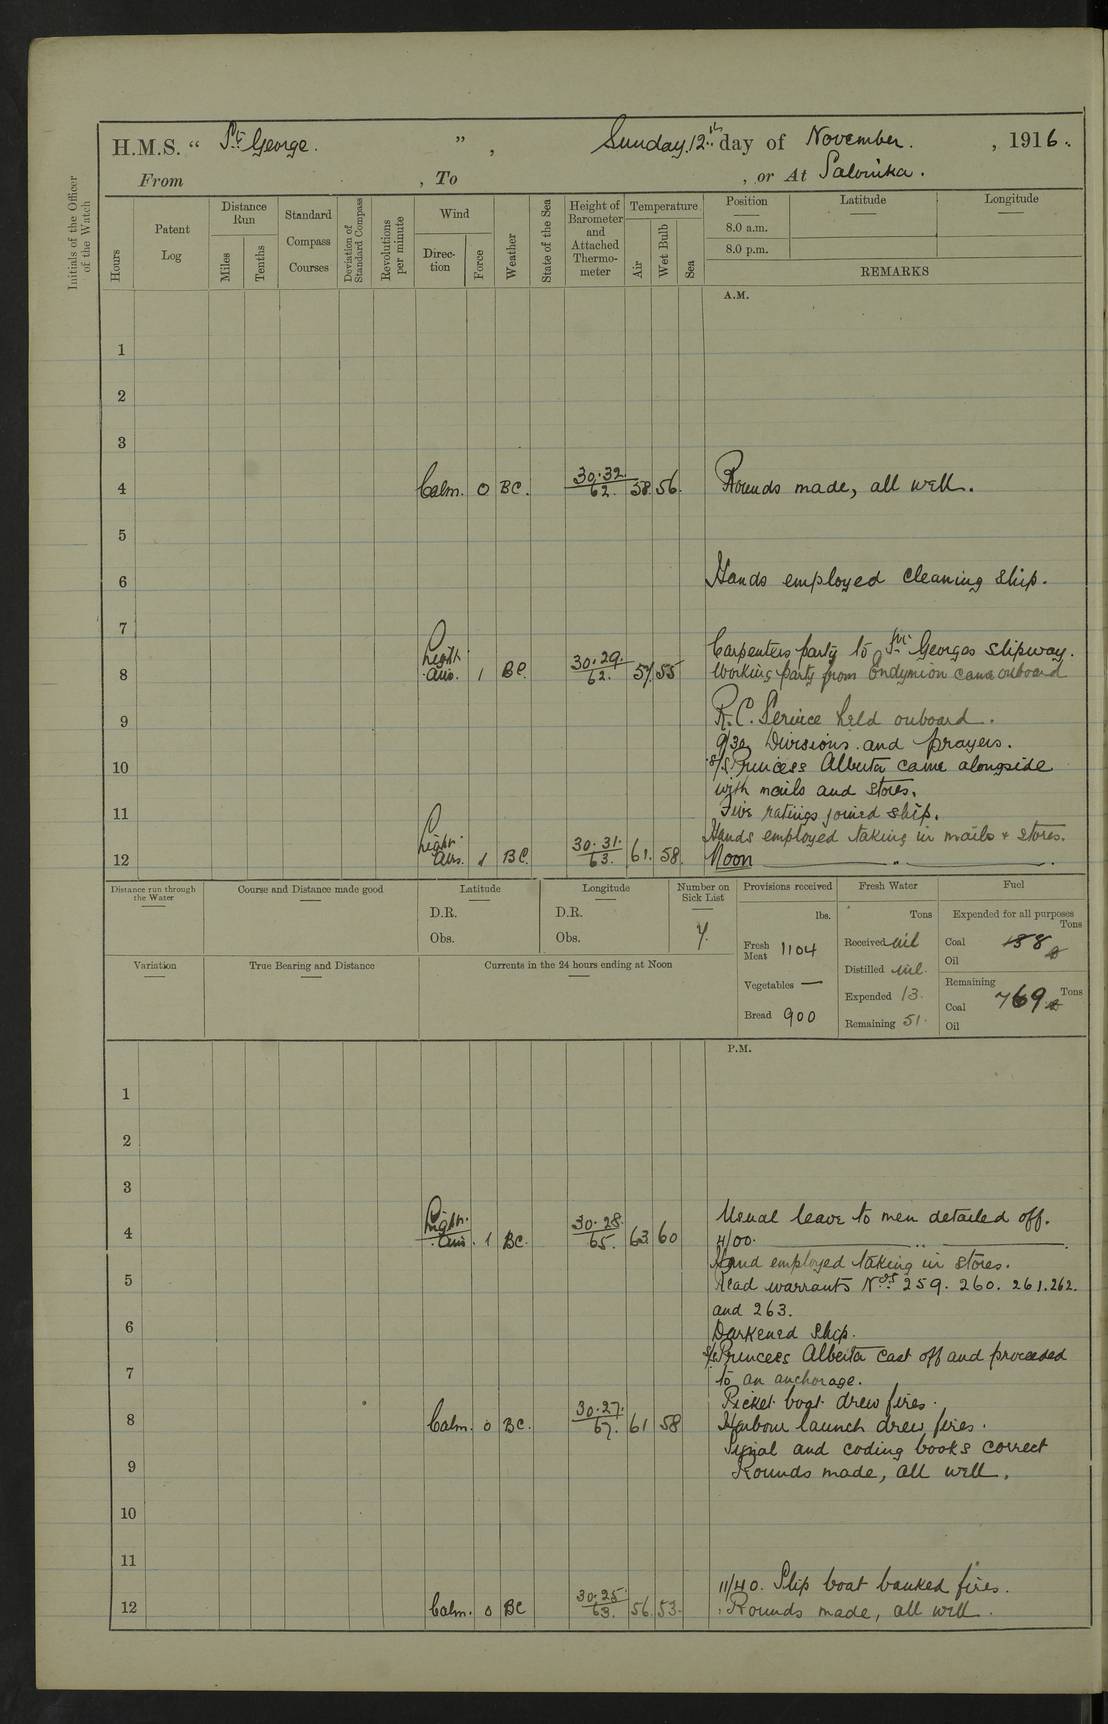 H.M.S. “ St George. ” , Sunday. 12th day of November. , 1916.
From , To , or At Salonika.
Initials of the Officer of the Watch
Hours
Patent Log
Distance Run
Miles
Tenths
Standard Compass Courses
Deviation of Standard Compass
Revolutions per minute
Wind
Direction
Force
Weather
State of the Sea
Height of Barometer and Attached Thermometer
Temperature
Air
Wet Bulb
Sea
Position Latitude Longitude
8.0 a.m.
8.0 p.m.
REMARKS
A.M.
1
2
3
4 Calm. 0 BC. 30.32. 62. 58. 56. Rounds made, all well.
5
6 Hands employed cleaning ship.
7
Carpenters party to St Georges slipway.
8 Light airs. 1 BC. 30.29 62. 57. 55 Working party from Endymion came onboard
9 R.C. Service held onboard.
9/30 Divisions and prayers.
10 S/S Princess Alberta came alongside
with mails and stores.
11 Five ratings joined ship.
Hands employed taking in mails & stores.
12 Light airs. 1 BC. 30.31. 63. 61. 58. Noon
Distance run through the Water
Course and Distance made good
Latitude
D.R.
Obs.
Longitude
D.R.
Obs.
Number on Sick List
7.
Provisions received
lbs.
Fresh Meat 1104
Vegetables —
Bread 900
Fresh Water
Tons
Received nil
Distilled nil.
Expended 13.
Remaining 51.
Fuel
Expended for all purposes
Tons
Coal
Oil
Remaining
Tons
Coal 769
Oil
Variation
True Bearing and Distance
Currents in the 24 hours ending at Noon
P.M.
1
2
3
Usual leave to men detailed off.
4 Light airs. 1 BC. 30.28. 65. 63. 60 4/00.
Hand employed taking in stores.
5 Read warrants Nos 259. 260. 261. 262.
and 263.
6 Darkened ship.
S/S Princess Alberta cast off and proceeded
7 to an anchorage.
Picket boat drew fires.
8 Calm. 0 BC. 30.27. 67. 61 58 Harbour launch drew fires.
Signal and coding books correct
9 Rounds made, all well.
10
11
11/40. Slip boat banked fires.
12 Calm. 0 BC 30.25. 63. 56. 53. Rounds made, all well.